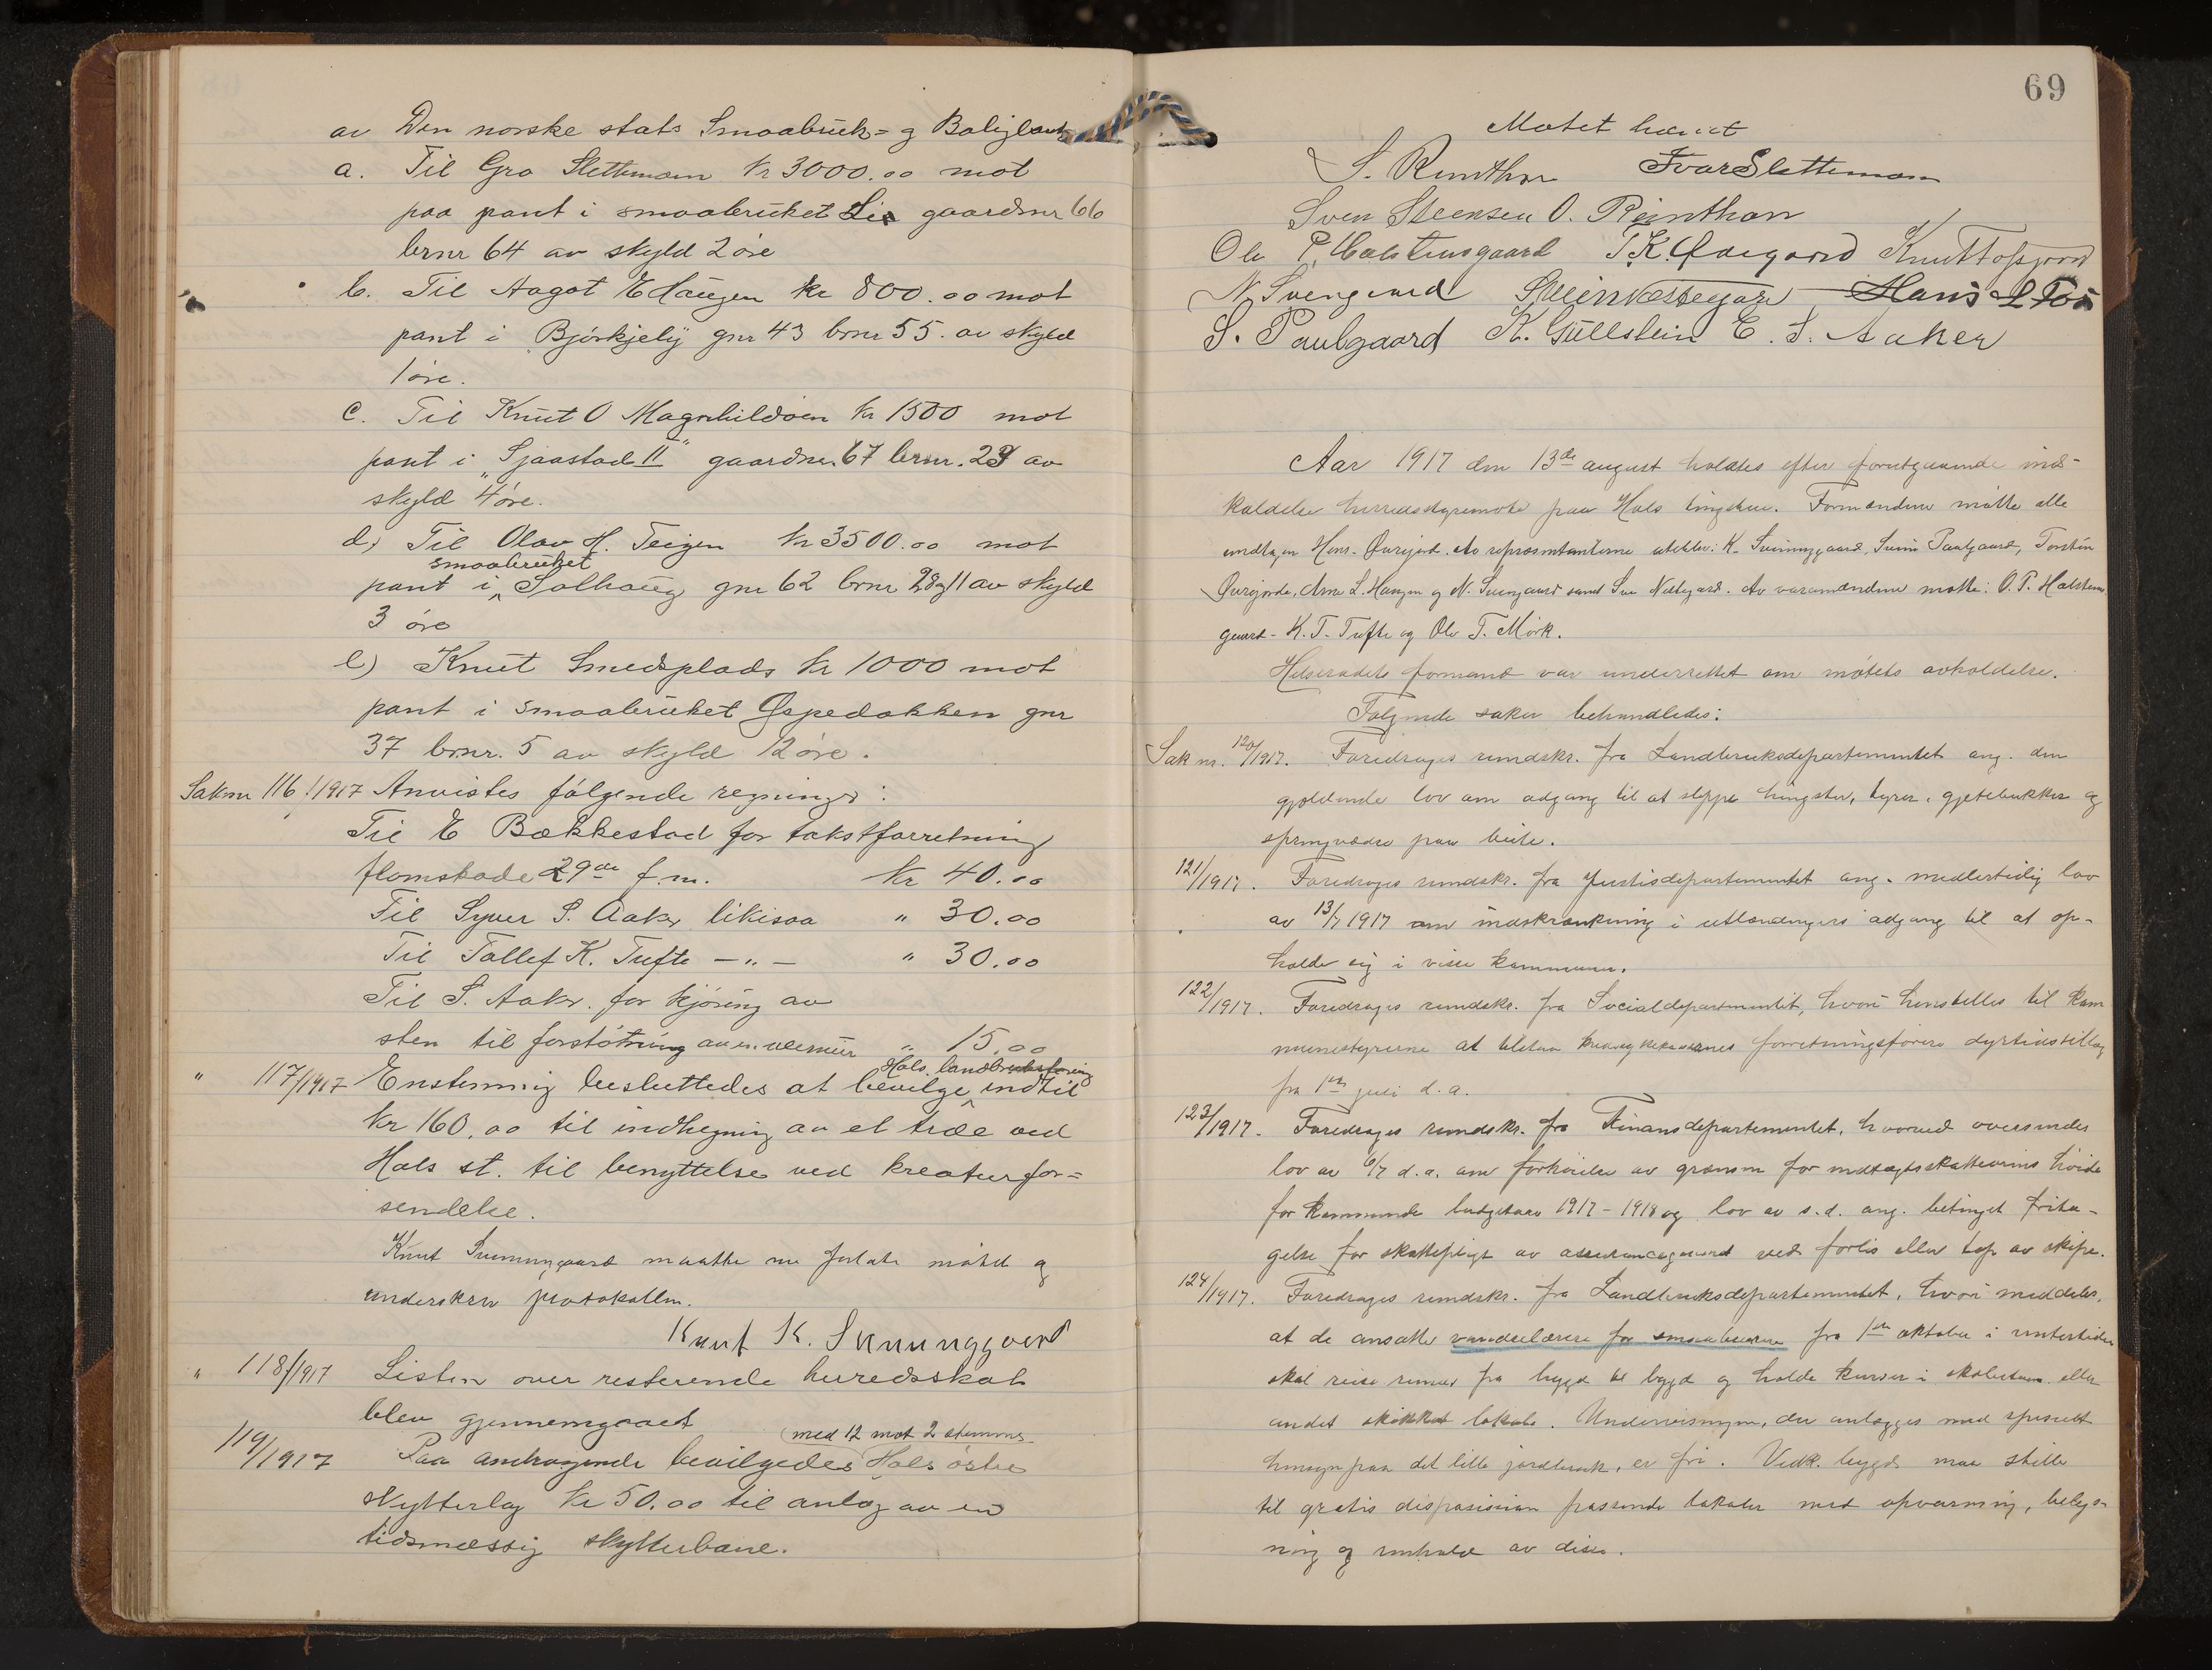 av Den norske stats Smaabruk= og Boligbank
a. Til Gro Slettemoen kr 3000.00 mot
paa pant i smaabruket Lia gaardsnr 66
brnr 64 av skyld 2 øre
b. Til Aagot E Haugen kr 800.00 mot
pant i Bjørkjely gnr 43 brnr 55. av skyld
1 øre.
c. Til Knut O Magnhildøen kr 1500 mot
pant i "Sjaastad II" gaardsnr. 67 brnr. 29 av
skyld 4 øre.
d) Til Olav H. Teigen kr 3500.00 mot
smaabruket
pant i Solhaug gnr 62 brnr 28 og 11 av skyld
3 øre
e) Knut Smedsplads kr 1000 mot
pant i smaabruket Øspedokken gnr
37 brnr. 5 av skyld 12 øre.
Saknr 116/1917 Anvistes følgende regninger:
Til E Bækkestad for takstforretning
flomskade 29de f.m. kr 40.00
Til Syver S. Aaker likesaa " 30.00
Til Tollef K. Tufte - " - " 30.00
Til S. Aaker for kjøring av
sten til forstøtning av en veimur " 15.00
Hols landbruksforening
" 117/1917 Enstemmig besluttedes at bevilge indtil
kr 160.00 til indhegning av et træe ved
Hols st. til benyttelse ved kreaturfor=
sendelse.
Knut Sveinunggaard maatte nu forlate møtet og
underskrev protokollen.
Knut K. Sveinunggaard
" 118/1917 Listen over resterende herredsskat
blev gjennemgaaet
med 12 mot 2 stemmer
119/1917 Paa andragende bevilgedes Hols østre
skytterlag kr 50.00 til anlæg av en
tidsmæssig skytterbane.
69
Møtet hævet
S. Reinthon Ivar Slettemoen
Sven Steensen O. Reinthon
Ole P. Halstensgaard T. K. Øvegaard Knut Tofsgaard
N. Svengaard Svein Vestegard Hans L Foss
S. Paulgaard K. Gullstein E. S. Aaker
Aar 1917 den 13de august holdtes efter forutgaaende ind-
kaldelse herredsstyremøte paa Hols tinghus. Formændene møtte alle
undtagen Hans Øvrejord. Av repræsentanterne uteblev: K. Sveinunggaard, Svein Paulgaard, Torstein
Øvrejorde, Arne L. Haugen og N. Svengaard samt Sven Vestegard. Av varamændene møtte: O. P. Halstens
gaard - K. T. Tufte og Ole T. Mørk.
Helseraadets formand var underrettet om møtets avholdelse.
Følgende saker behandledes:
Sak nr. 120/1917. Foredroges rundskr. fra Landbruksdepartementet ang. den
gjældende lov om adgang til at slippe hingster, tyrer, gjetebukker og
springvædre paa beite.
121/1917. Foredroges rundskr. fra Justisdepartementet ang. midlertidig lov
av 13/7 1917 om indskrænkning i utlændingers adgang til at op-
holde sig i visse kommuner.
122/1917. Foredroges rundskr. fra Socialdepartementet, hvori henstilles til kom
munestyrerne at tilstaa kredssykekassernes forretningsførere dyrtidstillæg
fra 1ste juli d.a.
123/1917. Foredroges rundskr. fra Finansdepartementet, hvorved oversendes
lov av 6/7 d.a. om forhøielse av grænsen for indtægtsskatteørens høide
for kommunale budgetaar 1917-1918 og lov av s.d. ang. betinget frita-
gelse for skattepligt av assurancegevinst ved forlis eller tap av skipe.
124/1917. Foredroges rundskr. fra Landbruksdepartementet, hvori meddeles,
at de ansatte vandrelærere for smaabrukere fra 1ste oktober i vintertiden
skal reise rundt fra bygd til bygd og holde kurser i skolestuen eller
andet skikket lokale. Undervisningen, der anlægges med specielt
hensyn paa det lille jordbruk, er fri. Vedk. bygd maa stille
til gratis disposision passende lokaler med opvarming, belys-
ning og renhold av disse.